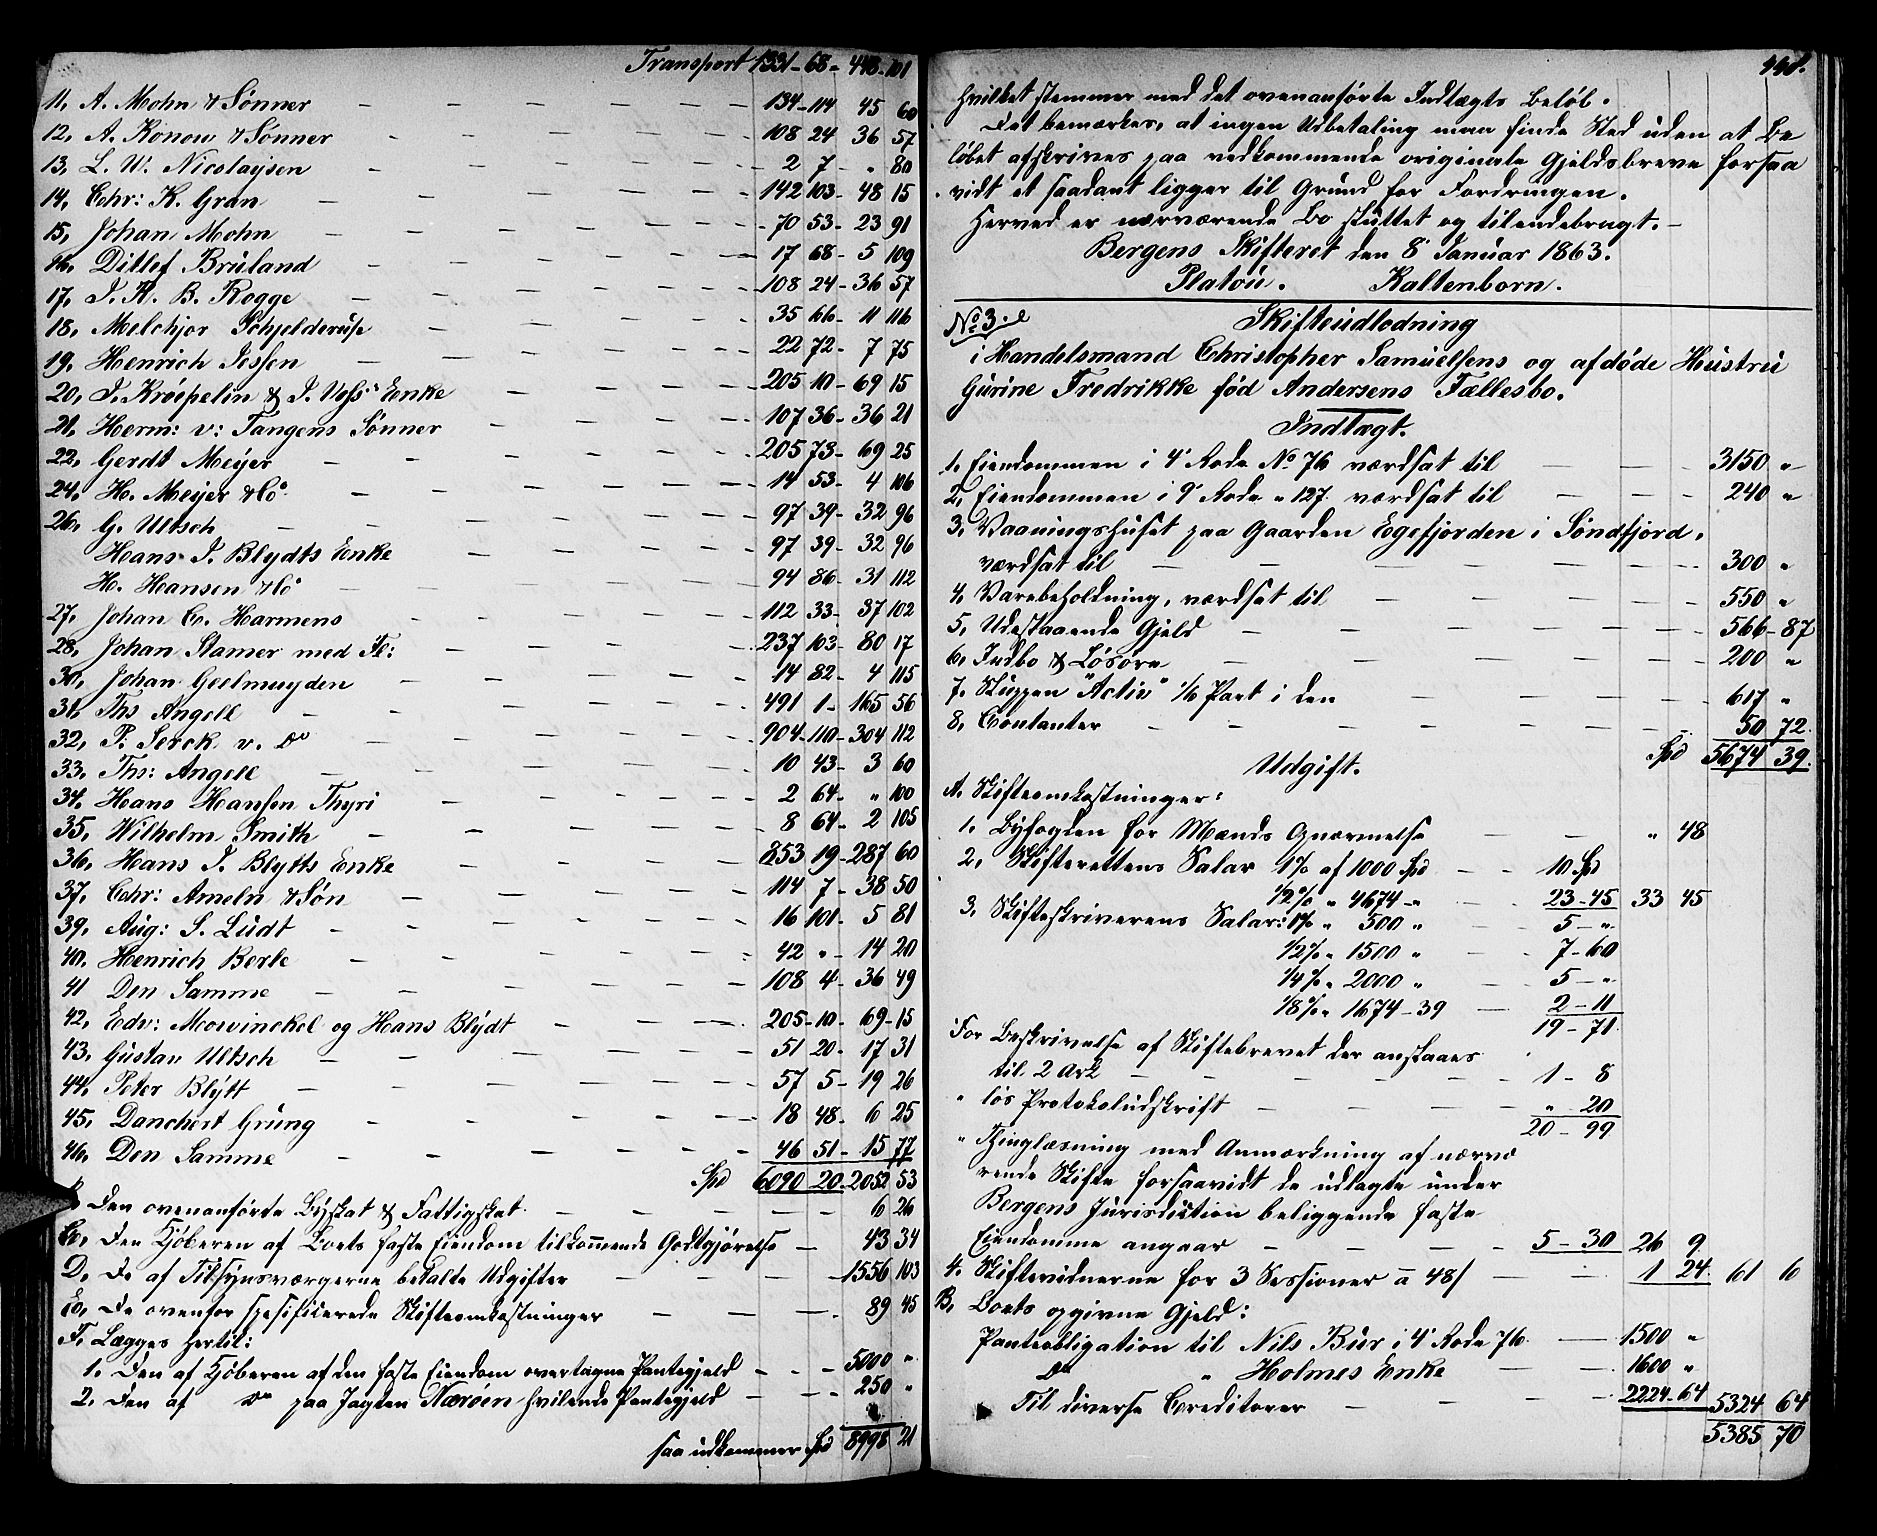 Transport 1331-68- 448-101
11, A. Mohn & Sønner — 134-114 45 60
12, A. Konow & Sønner — 108 24 36 57
13, L. W. Nicolaysen — 2 7 - " 80
14, Chr: K. Gran — 142 103- 48 15
15, Johan Mohn — 70 53- 23 91
16, Ditlef Brüland — 17 68- 5 109
17, J. R. B. Rogge — 108 24- 36 57
18, Melchjor Schjelderup — 35 66- 11 116
19, Henrich Jessen — 22 72- 7 75
20, J. Kröepelin & J. Uchs' Enke — 205 10- 69 15
21, Herm: v: Tangens Sønner — 107 36- 36 21
22, Gerdt Meyer — 205 73- 69 25
24, H. Meyer & Co — 14 53- 4 106
26, G. Ultsch — 97 39- 32 96
Hans J. Blydts Enke — 97 39- 32 96
H. Hansen & Co — 94 86- 31 112
27, Johan C. Harmens — 112 33- 37 102
28, Johan Stamer med Fl: — 237 103- 80 17
30, Johan Geelmuyden — 14 82- 4 115
31, Ths Angell — 491 1- 165 56
32, P. Serck v. Do — 904-110- 304 112
33, Ths: Angell — 10 43- 3 60
34, Hans Hansen Thyri — 2 64- " 100
35, Wilhelm Smith — 8 64- 2 105
36, Hans J. Blytts Enke — 853 19- 287 60
37, Chr: Ameln & Søn — 114 7- 38 50
39, Aug: S. Lüdt — 16 101- 5 81
40, Henrich Berle — 42 " - 14 20
41 Den Samme — 108 4- 36 49
42, Edv: Mowinckel og Hans Blydt — 205-10- 69-15
43, Gustav Ultsch — 51 20- 17 31
44, Peter Blytt — 57 5- 19 26
45, Danchert Grüng — 18 48- 6 25
46, Den Samme — 46 51- 15 77
Spd 6090 20- 2052 53
B, Den ovenanførte Byskat & Fattigskat — 6 26
C, Den Kjøberen af Boets faste Eiendom tilkommende Godtgjørelse — 43 34
D, De af Tilsynsværgerne betalte Udgifter — 1556 103
E, De ovenfor specificerede Skifteomkostninger — 89 45
F, Lægges hertil:
1. Den af Kjøberen af den faste Eiendom overtagne Pantegjeld — 5000 "
2. Den af Do paa Jagten Nærøen hvilende Pantegjeld — 250 "
saa udkommer Spd 8998 21
448.
hvilket stemmer med det ovenanførte Indtægts Beløb.
Det bemærkes, at ingen Udbetaling maa finde Sted uden at Be
løbet afskrives paa vedkommende originale Gjeldsbreve forsaa
vidt et saadant ligger til Grund for Fordringen.
Herved er nærværende Bo sluttet og tilendebragt. —
Bergens Skifteret den 8' Januar 1863.
Platou. Kaltenborn.
No 3.
Skifteudlodning
i Handelsmand Christopher Samuelsens og afdøde Hustru
Gurine Fredrikke fød Andersens Fællesbo.
Indtægt.
1. Eiendommen i 4' Rode No 76 værdsat til — 3150 "
2, Eiendommen i 9' Rode " 127. værdsat til — 240 "
3, Vaaningshuset paa Gaarden Egefjorden i Søndfjord,
værdsat til — 300 "
4, Varebeholdning, værdsat til — 550 "
5, Udestaaende Gjeld — 566-87
6, Indbo & Løsøre — 200 "
7. Skuppen "Activ" 1/6 Part i den — 617 "
8, Contanter — 50 72
Spd 5674 39.
Udgift.
A. Skifteomkostninger:
1. Byfogden for Mænds Opnævnelse — " 48
2, Skifterettens Salar 1% af 1000 Spd — 10 Spd
1/2% " 4674 " — 23-45 33 45
3, Skifteskriverens Salar: 1% " 500 " — 5 - "
1/2% " 1500 " — 7-60
1/4% " 2000 " — 5 - "
1/8% " 1674-39 — 2-11
19-71
For Beskrivelse af Skiftebrevet der anslaaes
til 2 Ark — 1-8
" løs Protokoludskrift — " 20
20-99
" Thinglæsning med Anmærkning af nærvæ
rende Skifte forsaavidt de udlagte under
Bergens Jurisdiction beliggende faste
Eiendomme angaar — 5-30 26 9
4. Skiftevidnerne for 3 Sessioner a 48 ſ — 1 24 61 6
B, Boets opgivne Gjeld:
Panteobligation til Nils Bür i 4' Rode 76. — 1500 "
Do " Holmes Enke — 1600 "
Til diverse Creditorer — 2224-64 5324 64
5385 70